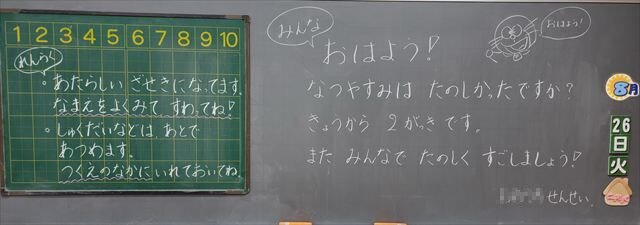 1 2 3 4 5 6 7 8 9 10
れんらく
。あたらしい ざせきになってます。
なまえをよくみて すわってね!
。しゅくだいなどは、あとで
あつめます。
つくえのなかに いれておいてね。
みんな
おはよう!
おはよう!
なつやすみは たのしかったですか?
きょうから 2がっきです。
また みんなで たのしく すごしましょう!
せんせい。
8月
26
日
火